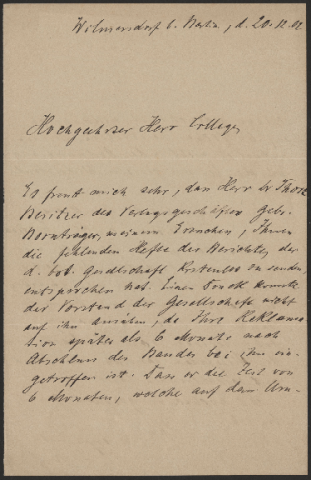 Wilmersdorf b. Berlin, d. 20.12.02
Hochgeehrter Herr College,
Es freut mich sehr, dass Herr Dr Thost
Besitzer des Verlagsgeschäftes Gebr.
Bornträger, meinem Ersuchen, Ihnen
die fehlenden Hefte der Berichte der
d. bot. Gesellschaft kostenlos zu senden,
entsprochen hat. Einen Druck konnte
der Vorstand der Gesellschaft nicht
auf ihn ausüben, da Ihre Reklama
tion später als 6 Monate nach
Abschluss des Bandes bei ihm ein-
getroffen ist. Dass er die Zeit von
6 Monaten, welche auf dem Um-